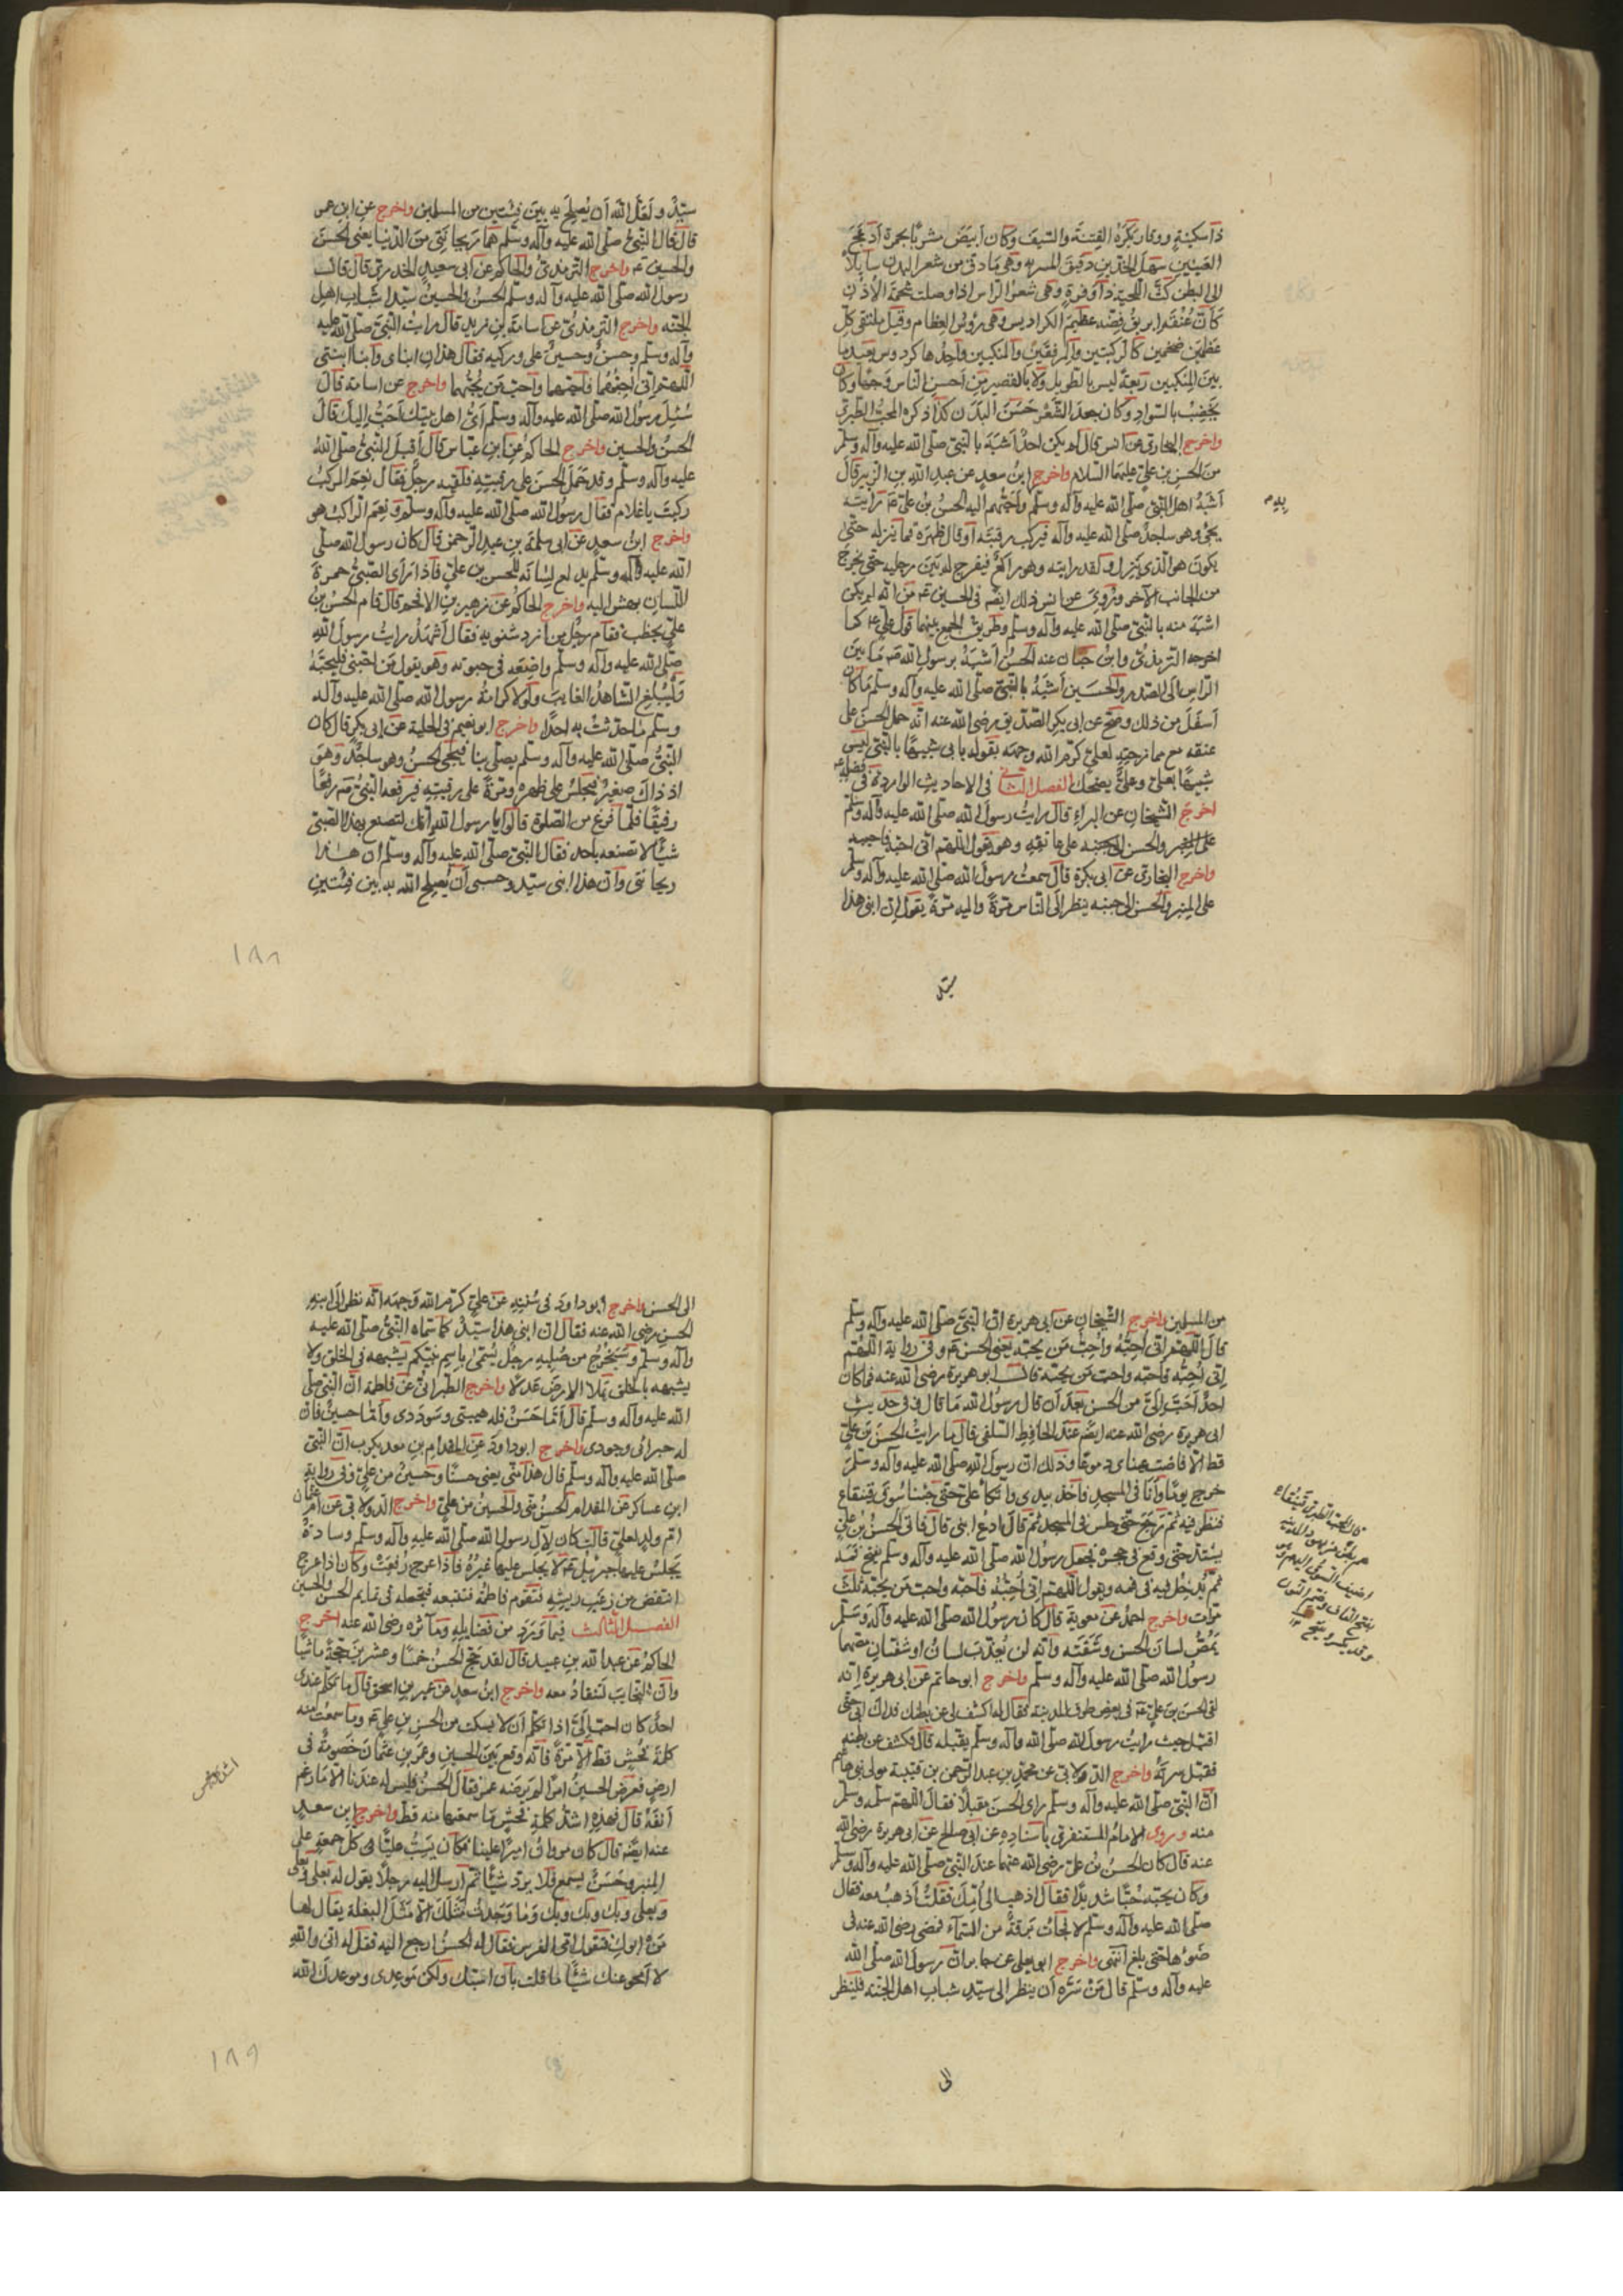 ذا سكينة ووقار يكره الفتنة والسيف وكان ابيض مشربا بحمرة ادعج
العينين سهل الخدين دقيق المسربه وهي مادق من شعر البدن سايلا
الى البطن كث اللحية ذا وفرة وهي شعر الراس اذا وصلت شحمة الاذن
كأن عنقه ابريق فضه عظيم الكراديس وهي رؤس العظام وقيل ملتقى كل
عظمين ضخمين كالركبتين والمرفقين والمنكبين واحدها كردوس بعيد ما
بين المنكبين ربعة ليس بالطويل ولا بالقصير من احسن الناس وجها وكان
يخضب بالسواد وكان جعد الشعر حسن البدن كذا ذكره المحب الطبري
واخرج البخاري عن انس قال لم يكن احد اشبه بالنبي صلى الله عليه وآله وسلم
من الحسن بن علي عليهما السلام واخرج ابن سعد عن عبد الله بن الزبير قال
اشبه اهل النبي صلى الله عليه وآله وسلم واحبهم اليه الحسن بن علي رايته
يجئ وهو ساجد صلى الله عليه وآله فيركب رقبته او قال ظهره فما ينزله حتى
يكون هو الذي ينزل ولقد رايته وهو راكع فيفرج له بين رجليه حتى يخرج
من الجانب الآخر وروي عن انس ذلك ايضا في الحسين من انه لم يكن
اشبه منه بالنبي صلى الله عليه وآله وسلم وطريق الجمع بينهما قول علي كما
اخرجه الترمذي وابن حبان عنه الحسن اشبه برسول الله ما بين
الراس الى الصدر والحسين اشبه بالنبي صلى الله عليه وآله وسلم ما كان
اسفل من ذلك وصح عن ابي بكر الصديق رضي الله عنه انه حمل الحسن على
عنقه مع ممازحته لعلي كرم الله وجهه بقوله بابي شبيها بالنبي ليس
شبيها بعلي وعلي يضحك الفصل الثاني في الاحاديث الواردة في فضله
اخرج الشيخان عن البراء قال رايت رسول الله صلى الله عليه وآله وسلم
والحسن على عاتقه وهو يقول اللهم اني احبه فاحبه
واخرج البخاري عن ابي بكرة قال سمعت رسول الله صلى الله عليه وآله وسلم
على المنبر والحسن الى جنبه ينظر الى الناس مرة واليه مرة يقول ان ابني هذا
سيد
سيد ولعل الله ان يصلح به بين فئتين من المسلمين واخرج عن ابن عمر
قال قال النبي صلى الله عليه وآله وسلم هما ريحانتي من الدنيا يعني الحسن
والحسين واخرج الترمذي والحاكم عن ابي سعيد الخدري قال قال
رسول الله صلى الله عليه وآله وسلم الحسن والحسين سيدا شباب اهل
الجنه واخرج الترمذي عن اسامة بن زيد قال رايت النبي صلى الله عليه
وآله وسلم وحسن وحسين على وركيه فقال هذان ابناي وابنا ابنتي
اللهم اني احبهما فاحبهما واحب من يحبهما واخرج عن اسامة قال
سئل رسول الله صلى الله عليه وآله وسلم اي اهل بيتك احب اليك قال
الحسن والحسين واخرج الحاكم عن ابن عباس قال اقبل النبي صلى الله
عليه وآله وسلم وقد حمل الحسن على رقبته فلقيه رجل فقال نعم المركب
ركبت يا غلام فقال رسول الله صلى الله عليه وآله وسلم ونعم الراكب هو
واخرج ابن سعد عن ابي سلمة بن عبد الرحمن قال كان رسول الله صلى
الله عليه وآله وسلم يدلع لسانه للحسن بن علي فاذا راى الصبي حمرة
اللسان يهش اليه واخرج الحاكم عن زهير بن الاقمر قال قام الحسن بن
علي يخطب فقام رجل من ازد شنويه فقال اشهد رايت رسول الله
صلى الله عليه وآله وسلم واضعه في حبوته وهو يقول من احبني فليحبه
وليبلغ الشاهد الغايب ولولا كرامة رسول الله صلى الله عليه وآله
وسلم ما حدثت به احدا واخرج ابو نعيم في الحلية عن ابي بكر قال كان
النبي صلى الله عليه وآله وسلم يصلي بنا فيجئ الحسن وهو ساجد وهو
اذ ذاك صغير فيجلس على ظهره ومرة على رقبته فيرفعه النبي رفعا
رفيقا فلما فرغ من الصلوة قالوا يا رسول الله انك لتصنع بهذا الصبي
شيئا لا تصنعه باحد فقال النبي صلى الله عليه وآله وسلم ان هذا
ريحانتي وان هذا ابني سيد وحسبي ان يصلح الله به بين فئتين
١٨٨
من المسلمين واخرج الشيخان عن ابي هريرة ان النبي صلى الله عليه وآله وسلم
قال اللهم اني احبه واحب من يحبه يعني الحسن وفي رواية اللهم
اني احبه فاحبه واحب من يحبه قال ابو هريرة رضي الله عنه فما كان
احد احب الي من الحسن بعد ان قال رسول الله ما قال وفي حديث
ابي هريرة رضي الله عنه ايضا عند الحافظ السلفي قال ما رايت الحسن بن علي
قط الا فاضت عيناي دموعا وذلك ان رسول الله صلى الله عليه وآله وسلم
خرج يوما وانا في المسجد فاخذ بيدي واتكا علي حتى جئنا سوق قينقاع
فنظر فيه ثم رجع حتى جلس في المسجد ثم قال ادع ابني قال فاتى الحسن بن علي
يشتد حتى وقع في حجره فجعل رسول الله صلى الله عليه وآله وسلم يفتح فمه
ثم يدخل فيه في فمه ويقول اللهم اني احبه فاحبه واحب من يحبه ثلث
مرات واخرج احمد عن معوية قال كان رسول الله صلى الله عليه وآله وسلم
يمص لسان الحسن وشفته وانه لن يعذب لسان او شفتان مصهما
رسول الله صلى الله عليه وآله وسلم واخرج ابو حاتم عن ابي هريرة انه
لقى الحسن بن علي في بعض طرق المدينة فقال له اكشف لي عن بطنك فداك ابي حتى
اقبل حيث رايت رسول الله صلى الله وآله وسلم يقبله قال فكشف عن بطنه
فقبل سرته واخرج الدولابي عن محمد بن عبد الرحمن بن قتيبة مولى بني هاشم
ان النبي صلى الله عليه وآله وسلم راى الحسن مقبلا فقال اللهم سلمه وسلم
منه وروى الامام المستغفري باسناده عن ابي صالح عن ابي هريرة رضي الله
عنه قال كان الحسن بن علي رضي الله عنهما عند النبي صلى الله عليه وآله وسلم
وكان يحبه حبا شديدا فقال اذهب الى امك فقلت اذهب معه فقال
صلى الله عليه وآله وسلم لا فجاءت برقة من السماء فمضى رضي الله عنه في
ضوئها حتى بلغ واخرج ابو يعلى عن جابر ان رسول الله صلى الله
عليه وآله وسلم قال من سره ان ينظر الى سيد شباب اهل الجنة فلينظر
الى
الى الحسن واخرج ابو داود في سننه عن علي كرم الله وجهه انه نظر الى ابنه
الحسن رضي الله عنه فقال ان ابني هذا سيد كما سماه النبي صلى الله عليه
وآله وسلم وسيخرج من صلبه رجل يسمى باسم نبيكم يشبهه في الخلق ولا
يشبهه بالخلق يملا الارض عدلا واخرج الطبراني عن فاطمة ان النبي صلى
الله عليه وآله وسلم قال اما حسن فله هيبتي وسوددي واما حسين فان
له جراتي وجودي واخرج ابو داود عن المقدام بن معد يكرب ان النبي
صلى الله عليه وآله وسلم قال هذا مني يعني حسنا وحسين من علي وفي رواية
ابن عساكر عن المقدام الحسن مني والحسين من علي واخرج الدولابي عن ام عثمان
ام ولد لعلي قالت كان لآل رسول الله صلى الله عليه وآله وسلم وسادة
يجلس عليها جبرئيل لا يجلس عليها غيره فاذا عرج رفعت وكان اذا عرج
انتفض من زغب ريشه فتقوم فاطمة فتتبعه فيجعله في تمايم الحسن والحسين
الفصل الثالث فيما ورد من فضايله ومآثره رضي الله عنه اخرج
الحاكم عن عبد الله بن عبيد قال لقد حج الحسن خمسا وعشرين حجة ماشيا
وان النجايب لتقاد معه واخرج ابن سعد عن عمير بن اسحق قال ما تكلم عندي
احد كان احب الي اذا تكلم ان لا يسكت من الحسن بن علي وما سمعت منه
كلمة فحش قط الا مرة فانه وقع بين الحسين وعمر بن عثمان خصومة في
ارض فعرض الحسين امرا لم يرضه عمر فقال الحسن فليس له عندنا الا ما رغم
انفه قال فهذه اشد كلمة فحش ما سمعتها منه قط واخرج ابن سعد
عنه ايضا قال كان مروان اميرا علينا فكان يسب عليا في كل جمعة على
المنبر وحسن يسمع فلا يرد شيئا ثم ارسل اليه رجلا يقول له بعلي وبعلي
وبعلي وبك وبك وبك وما وجدت مثلك الا مثل البغلة يقال لها
من ابوك فتقول امي الفرس فقال له الحسن ارجع اليه فقل له اني والله
لا امحو عنك شيئا مما قلت بان اسبك ولكن موعدي وموعدك الله
١٨٩